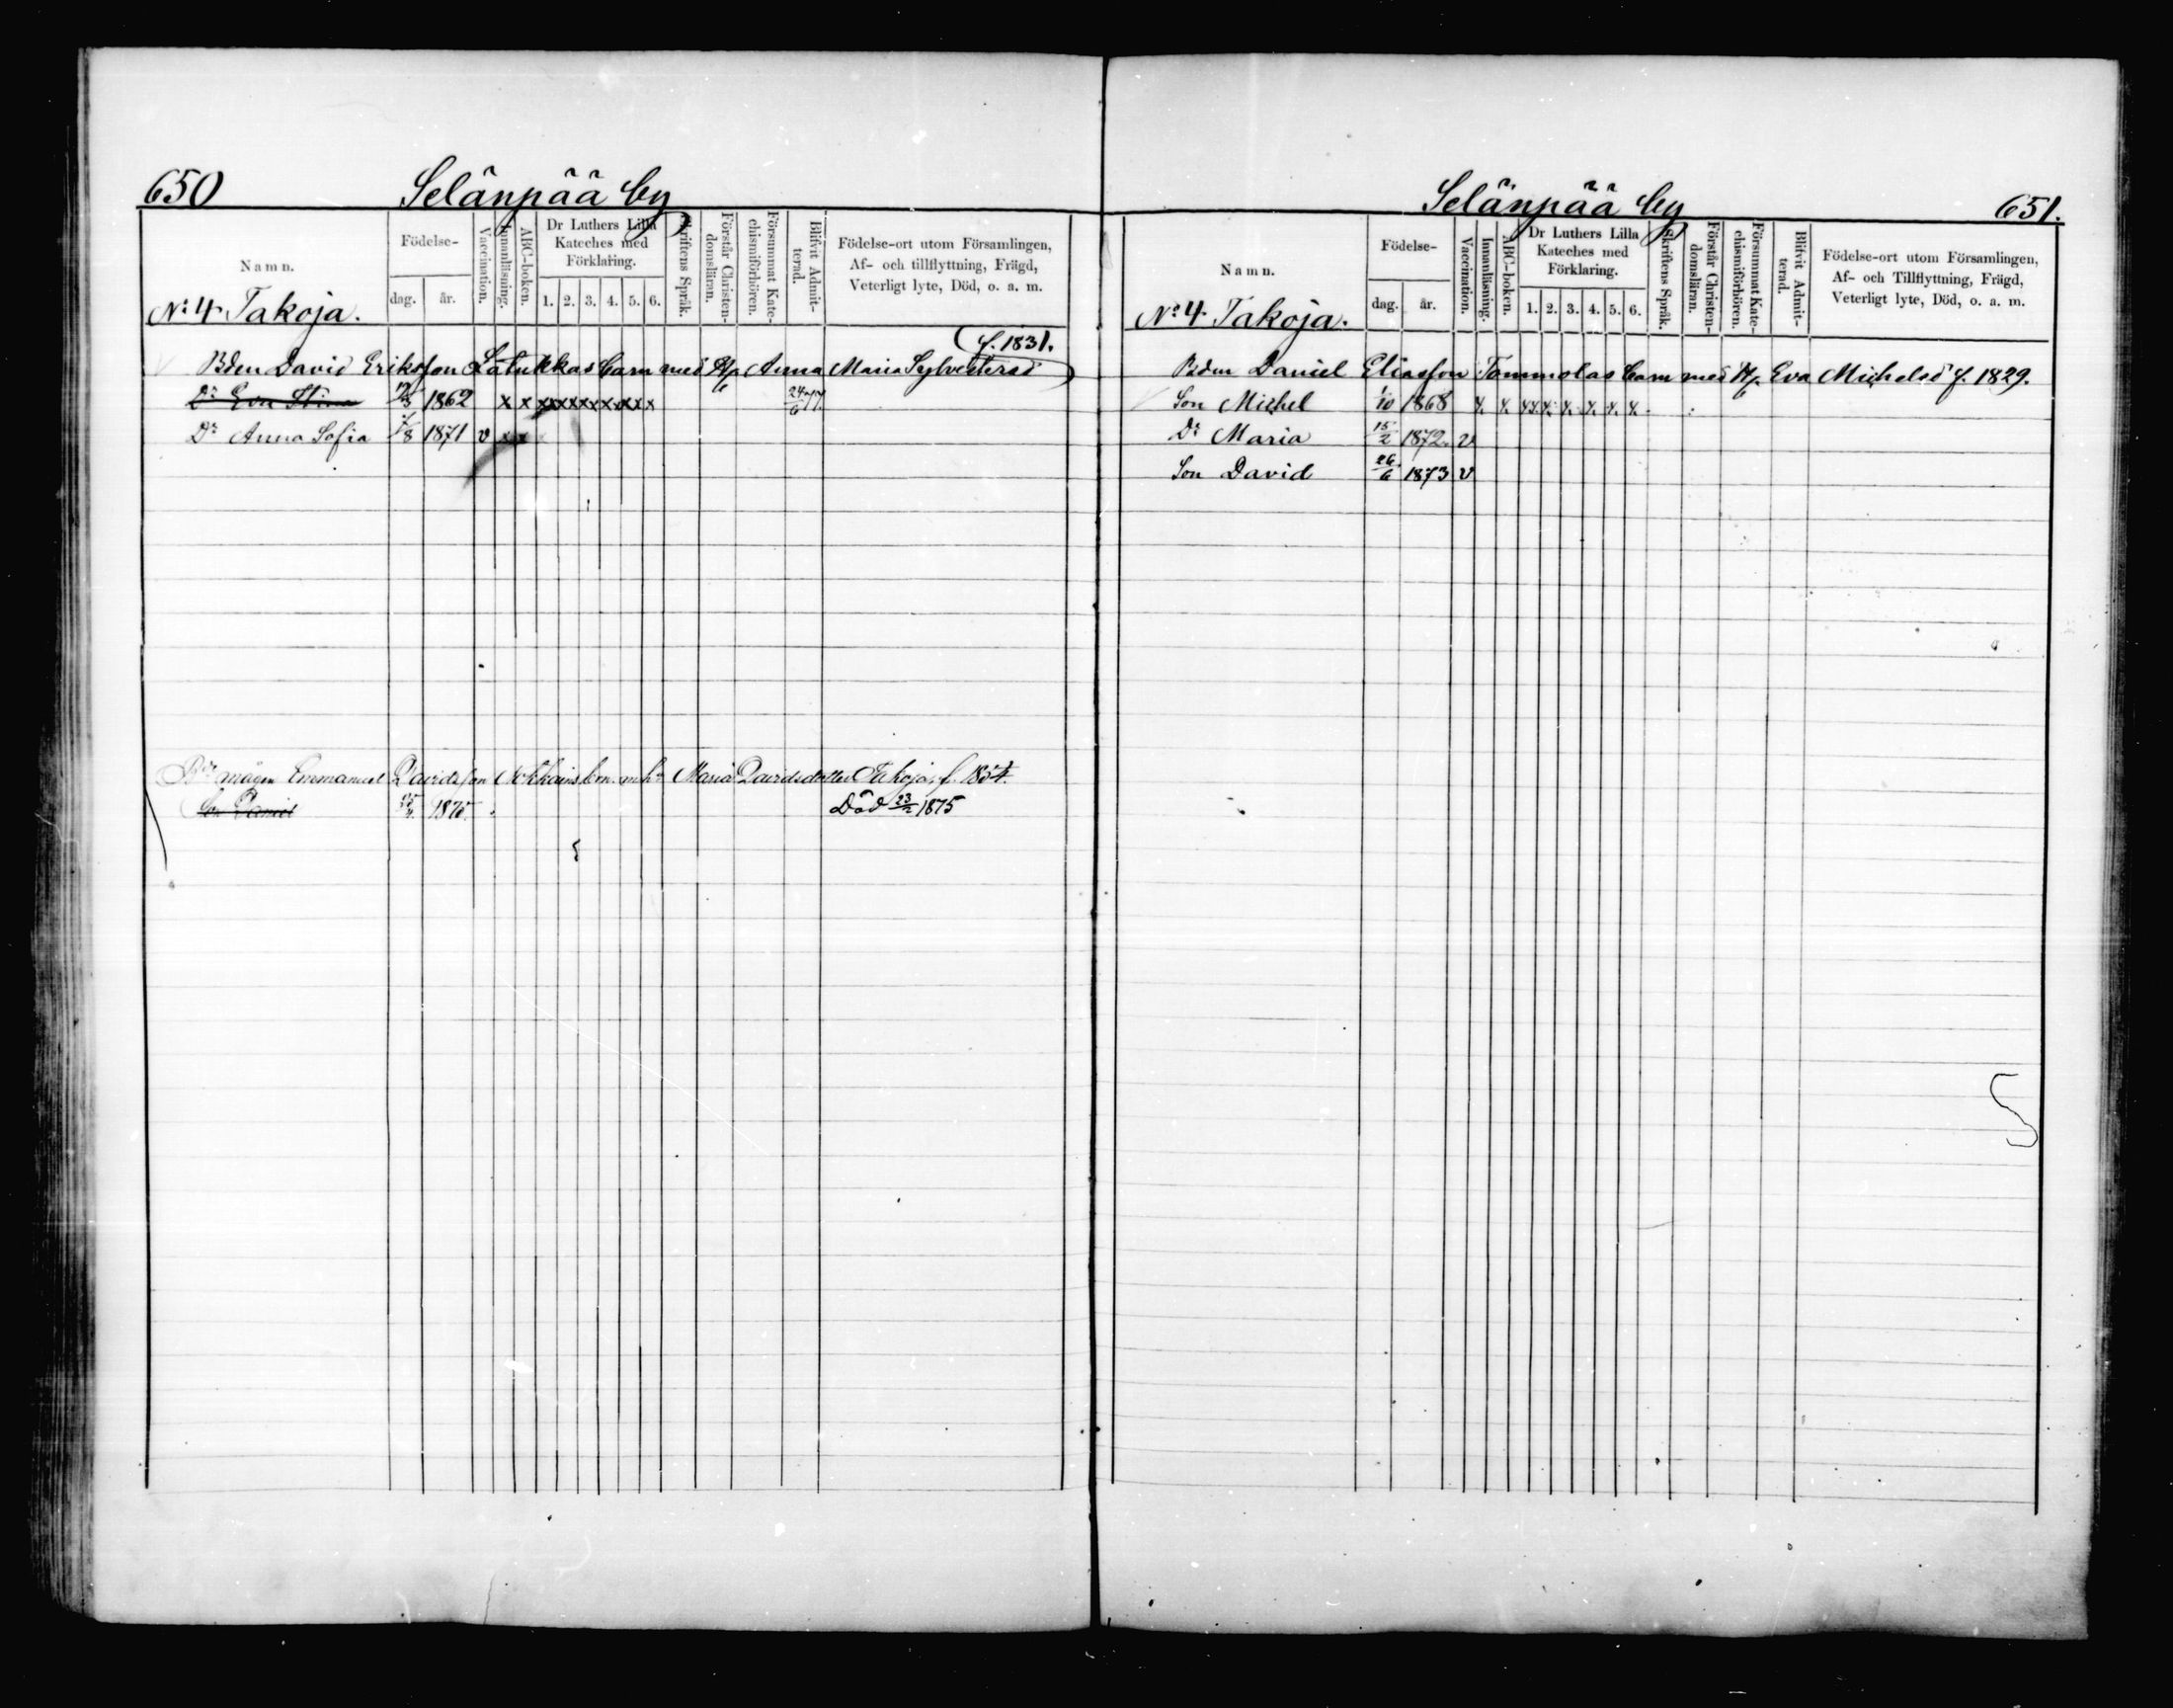 650 Selänpää by
Namn. Födelse- dag. år. Vaccination. Innanläsning. ABC-boken. Dr Luthers Lilla Kateches med Förklaring. 1. 2. 3. 4. 5. 6. Skriftens Språk. Förstår Christen-domsläran. Försummat Kate-chismiförhören. Blifvit Admit-terad. Födelse-ort utom Församlingen, Af- och tillflyttning, Frägd, Veterligt lyte, Död, o. a. m.
No: 4 Takoja.
f. 1831.
Bden David Eriksson Latukkas barn med H. Anna Maria Sylvestersd
Dr Eva Stina 1862 x x x x x x x x x x 24/6 77.
Dr Anna Sofia 1/8 1871 v x x
Bdr mågen Emmanuel Davidsson bn. m. h. Maria Davidsdotter Takoja, f. 1854.
Son Daniel 1875. Död 23/2 1875
Selänpää by 651.
Namn. Födelse- dag. år. Vaccination. Innanläsning. ABC-boken. Dr Luthers Lilla Kateches med Förklaring. 1. 2. 3. 4. 5. 6. Skriftens Språk. Förstår Christen-domsläran. Försummat Kate-chismiförhören. Blifvit Admit-terad. Födelse-ort utom Församlingen, Af- och Tillflyttning, Frägd, Veterligt lyte, Död, o. a. m.
No: 4. Takoja.
Bden Daniel Eliasson Tommolas barn med H. Eva Michelsd f. 1829.
Son Michel 1/10 1868
Dr Maria 15/2 1872. v
Son David 26/6 1873 v